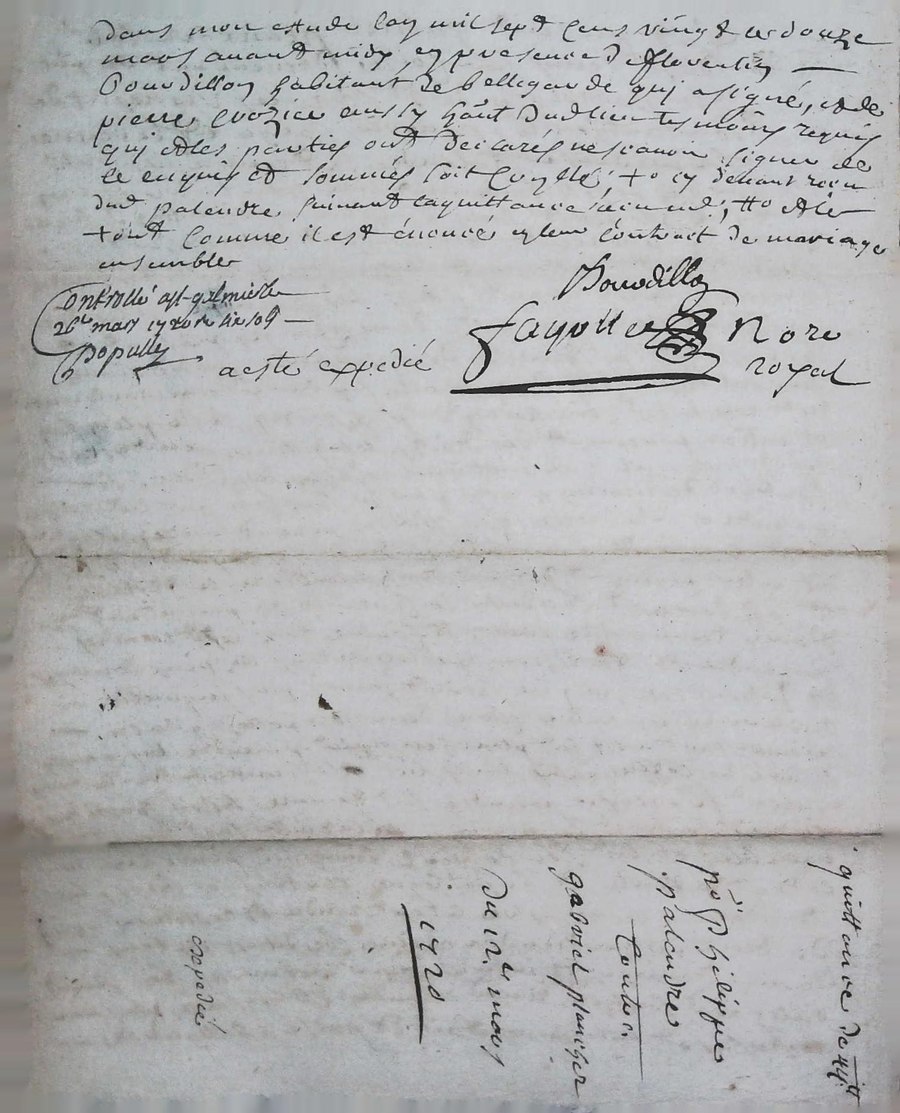 dans mon estude lan mil sept cens vingt et douze
mars avant midy en presence de fleurentin
Bourdillon habitant de bellegarde qui a signé, et de
pierre crozier aussy habitant dud lieu tesmoins requis
qui et les parties ont declarés ne scavoir signer de
ce enquis et sommés soit controllé,
dud palandre suivant la quittance
tout comme il est énoncé en leur contract de mariage
ensemble
Bourdillon
Controllé a st galmier le
26e mars 1720
a esté expedié
fayolle Nore
royal
quittance de
po Philippe
palandre
Contre
gabriel planchet
du 12e mars
1720
expedié